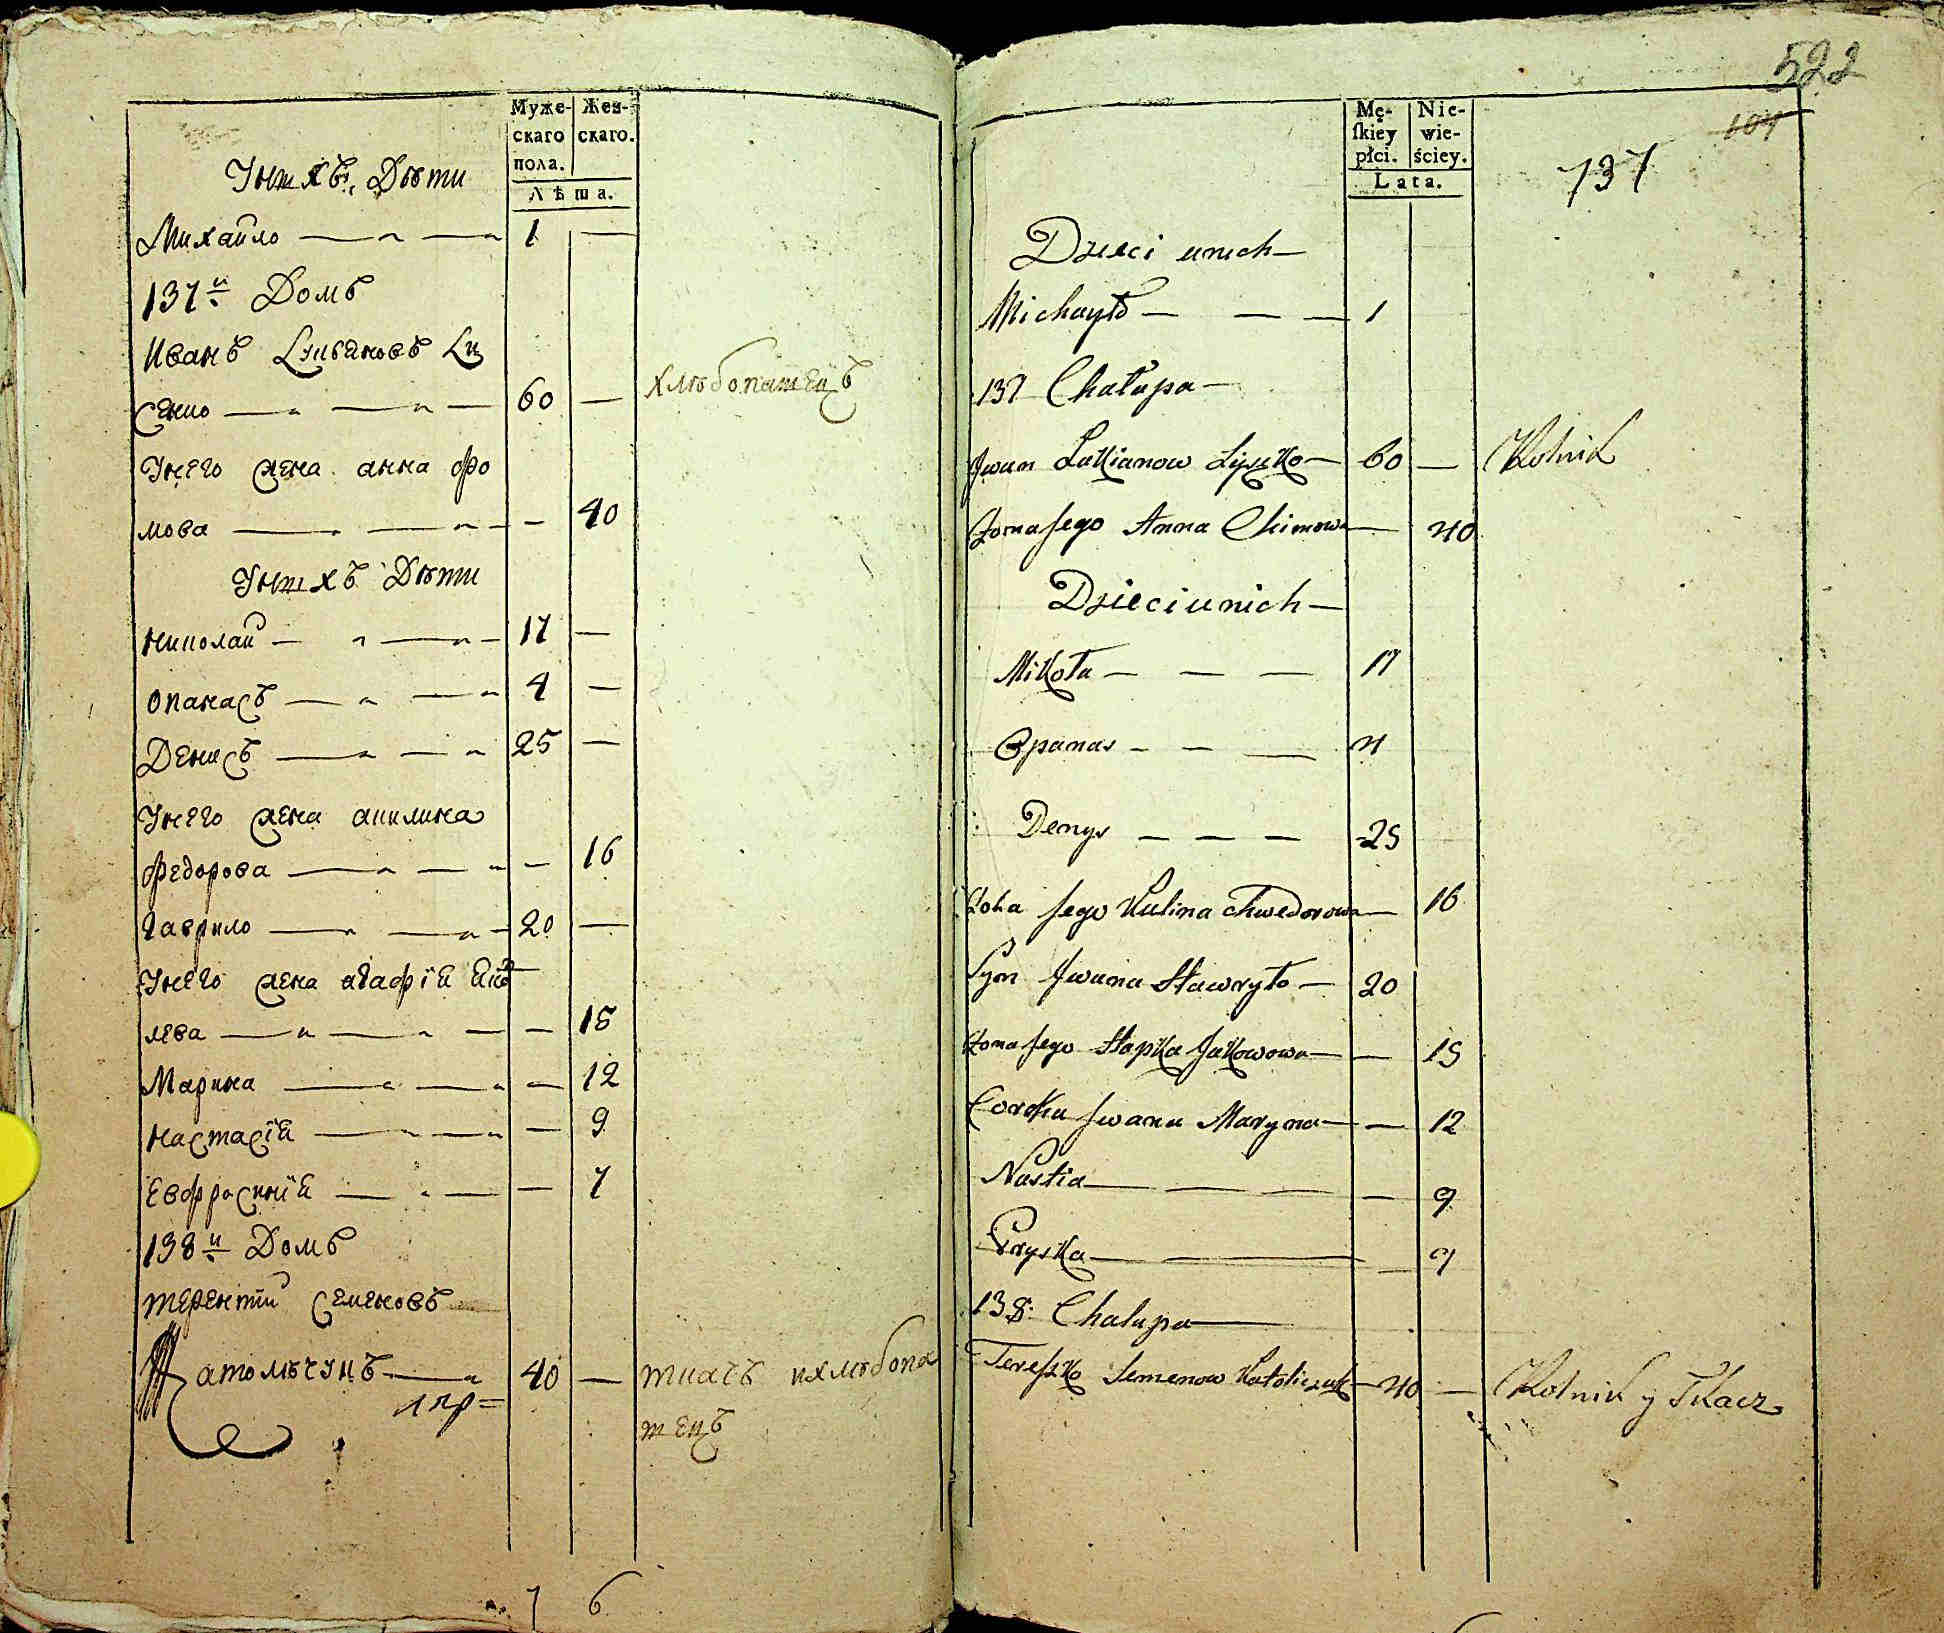 Муже-
скаго
пола.
Жен-
скаго.
Лѣта.
Унихъ Дѣти
Михайло — — 1 —
137й Домъ
Иванъ Лукьяновъ Ли
сенко — — — 60 — хлѣбопашецъ
Унего жена анна фо
мова — — — 40
Унихъ Дѣти
Николай — — 17 —
Опанасъ — — 4 —
Денисъ — — 25 —
Унего жена акилина
федорова — — — 16
Гаврило — — 20 —
Унего жена агафія яко
лева — — — 15
Марина — — — 12
Настасія — — — 9
Евфросинія — — — 7
138й Домъ
терентий Семеновъ
атолѣчукъ — 40 — ткачъ ихлѣбопа
шецъ
7 6
522
104
137
Mę-
skiey
płci.
Nie-
wie-
ściey.
Lata.
Dzieci unich —
Michayło — — — 1
137 Chałupa —
Jwan Łukianow Łysko — 60 — Rolnik
Żona Jego Anna Chimowa — 40
Dzieci unich —
Mikoła — — — 17
Opanas — — — 4
Denys — — — 25
Żona Jego Kulina Chwedorowa — 16
Syn Jwana Hawryło — 20
Żona Jego Hapka Jakowowa — — 15
Corka Jwana Maryna — — 12
Nastia — — — — 9
Pryska — — — 7
138: Chałupa —
Tereszko Semenow Katoliczuk — 40 — Rolnik y Tkacz